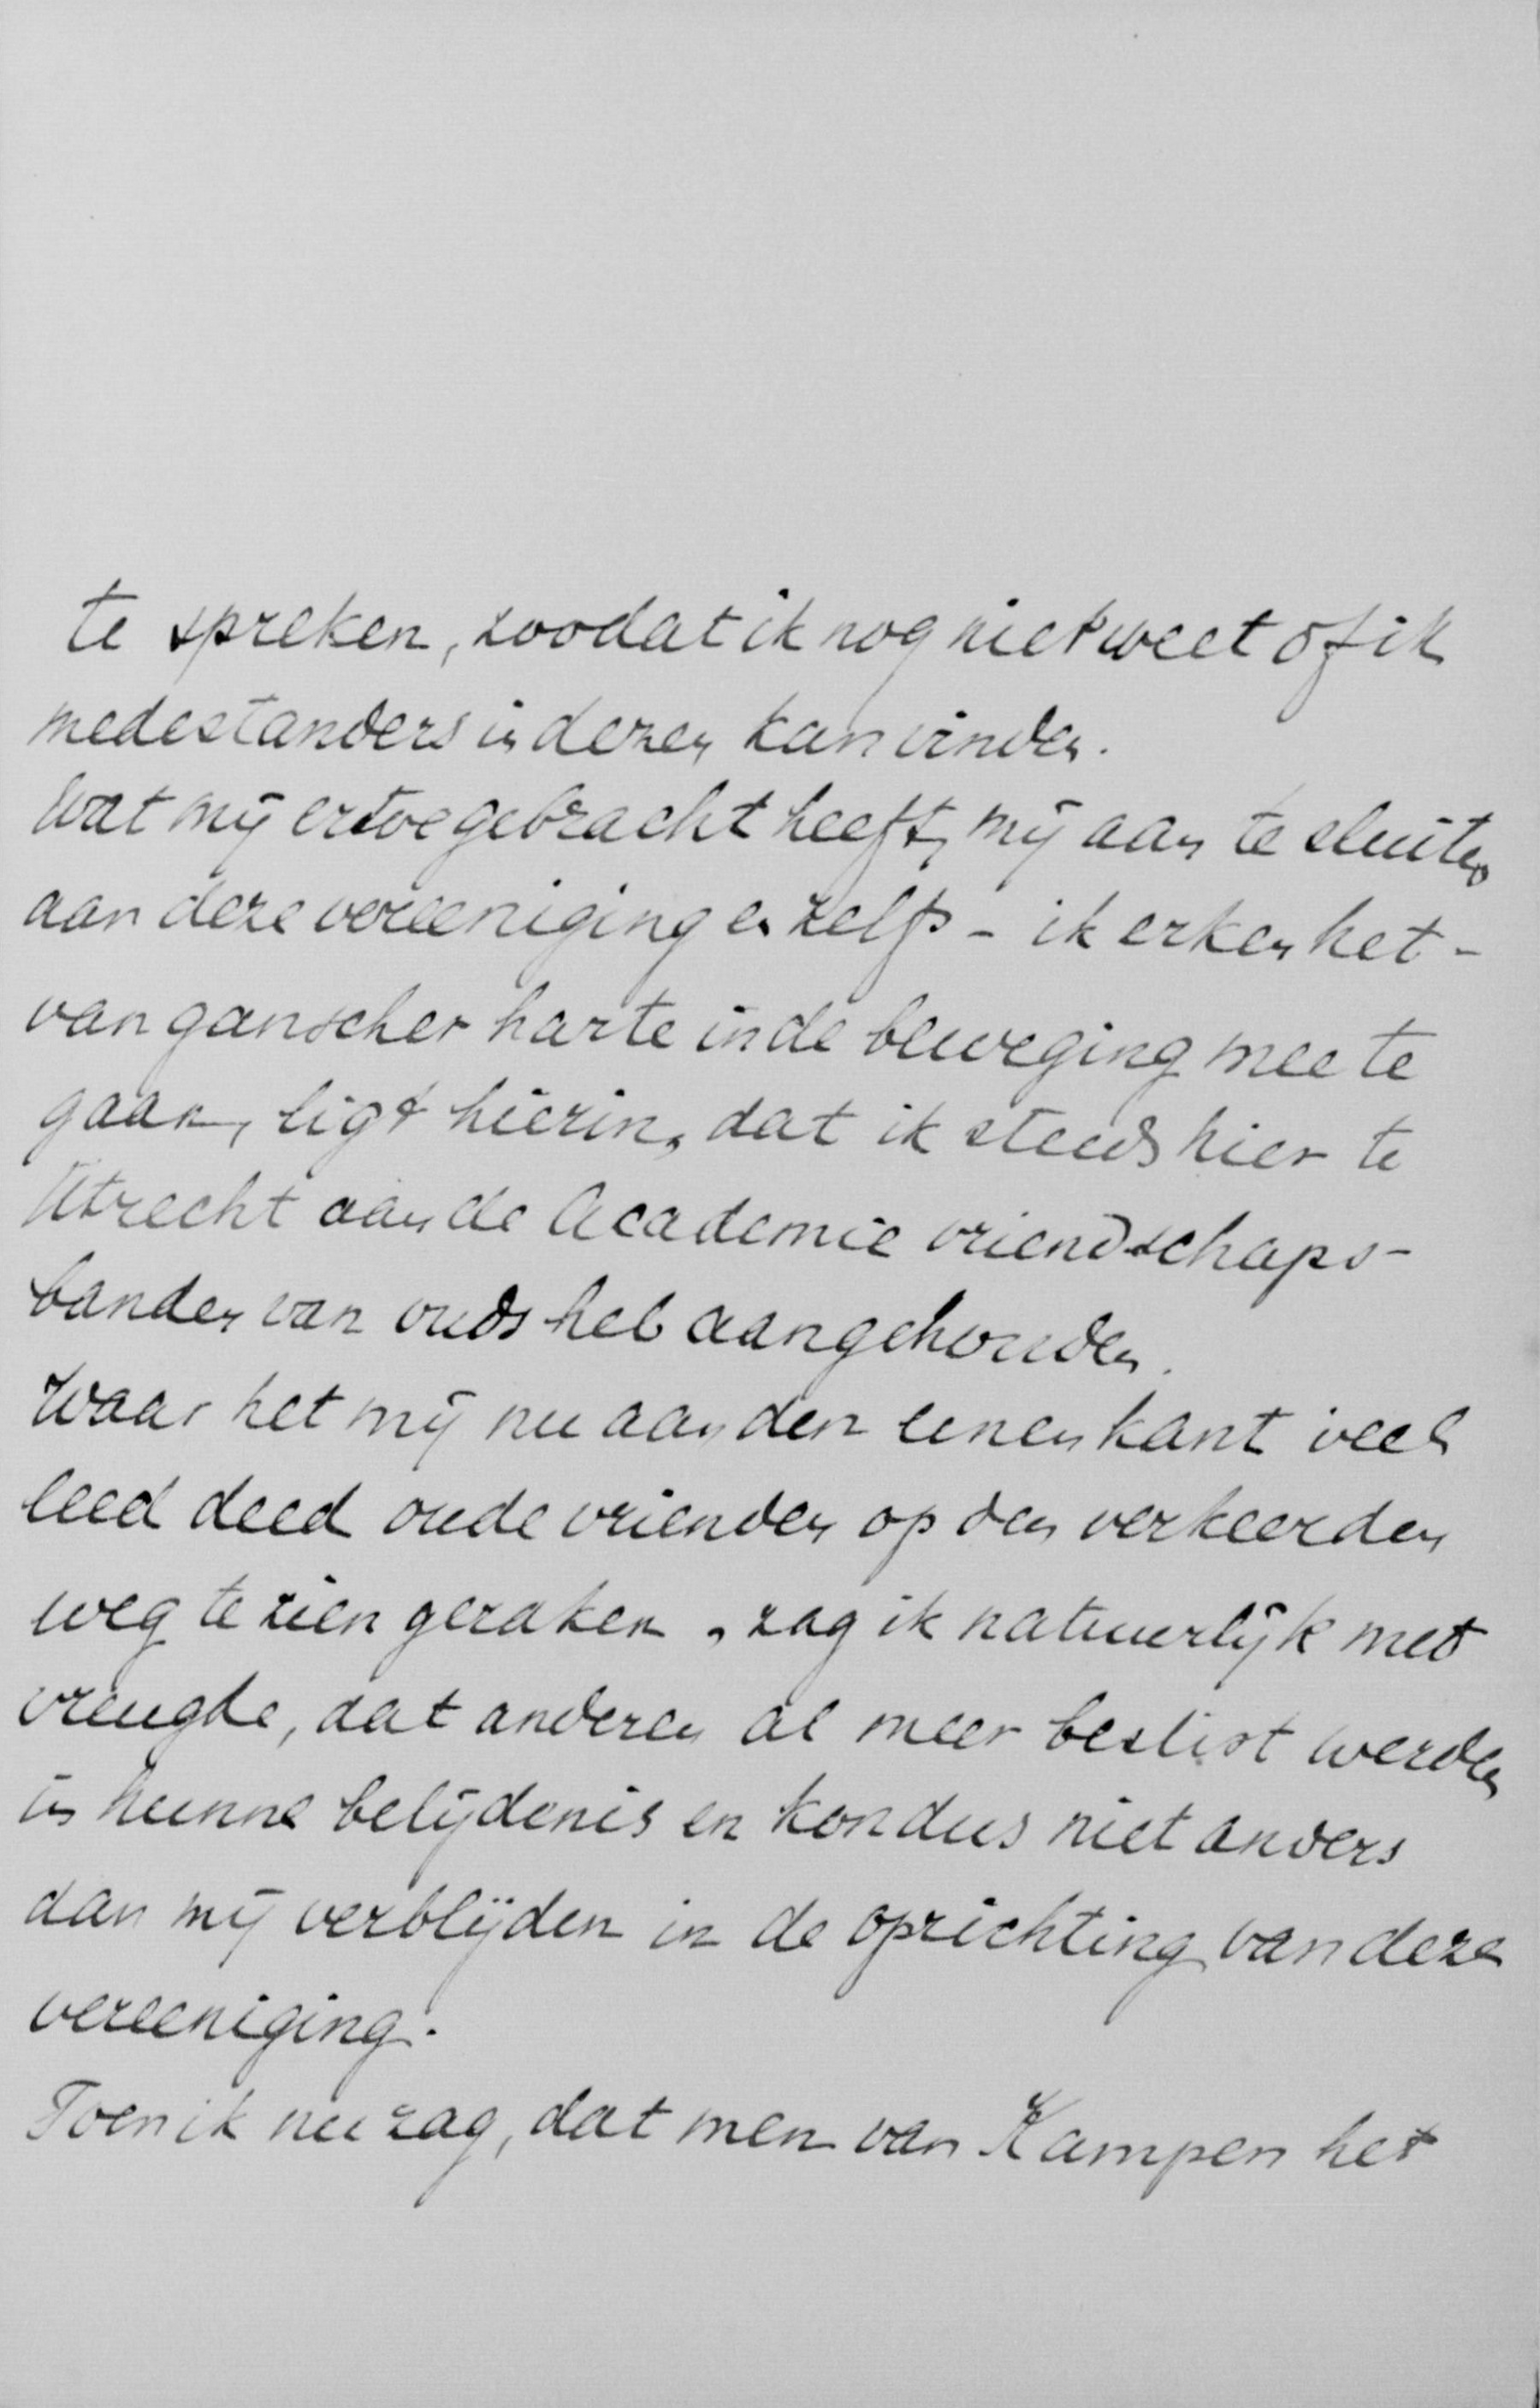 te spreken, zoodat ik nog niet weet of ik
medestanders in dezen kan vinden.
Wat mij ertoe gebracht heeft, mij aan te sluiten
aan deze vereeniging en zelfs - ik erken het -
van ganscher harte in de beweging mee te
gaan, ligt hierin, dat ik steeds hier te
Utrecht aan de Academie vriendschaps-
banden van ouds heb aangehouden.
Waar het mij nu aan den eenen kant veel
leed deed oude vrienden op den verkeerden
weg te zien geraken, zag ik natuurlijk met
vreugde, dat anderen al meer beslist werden
in hunne belijdenis en kon dus niet anders
dan mij verblijden in de oprichting van deze
vereeniging.
Toen ik nu zag, dat men van Kampen het